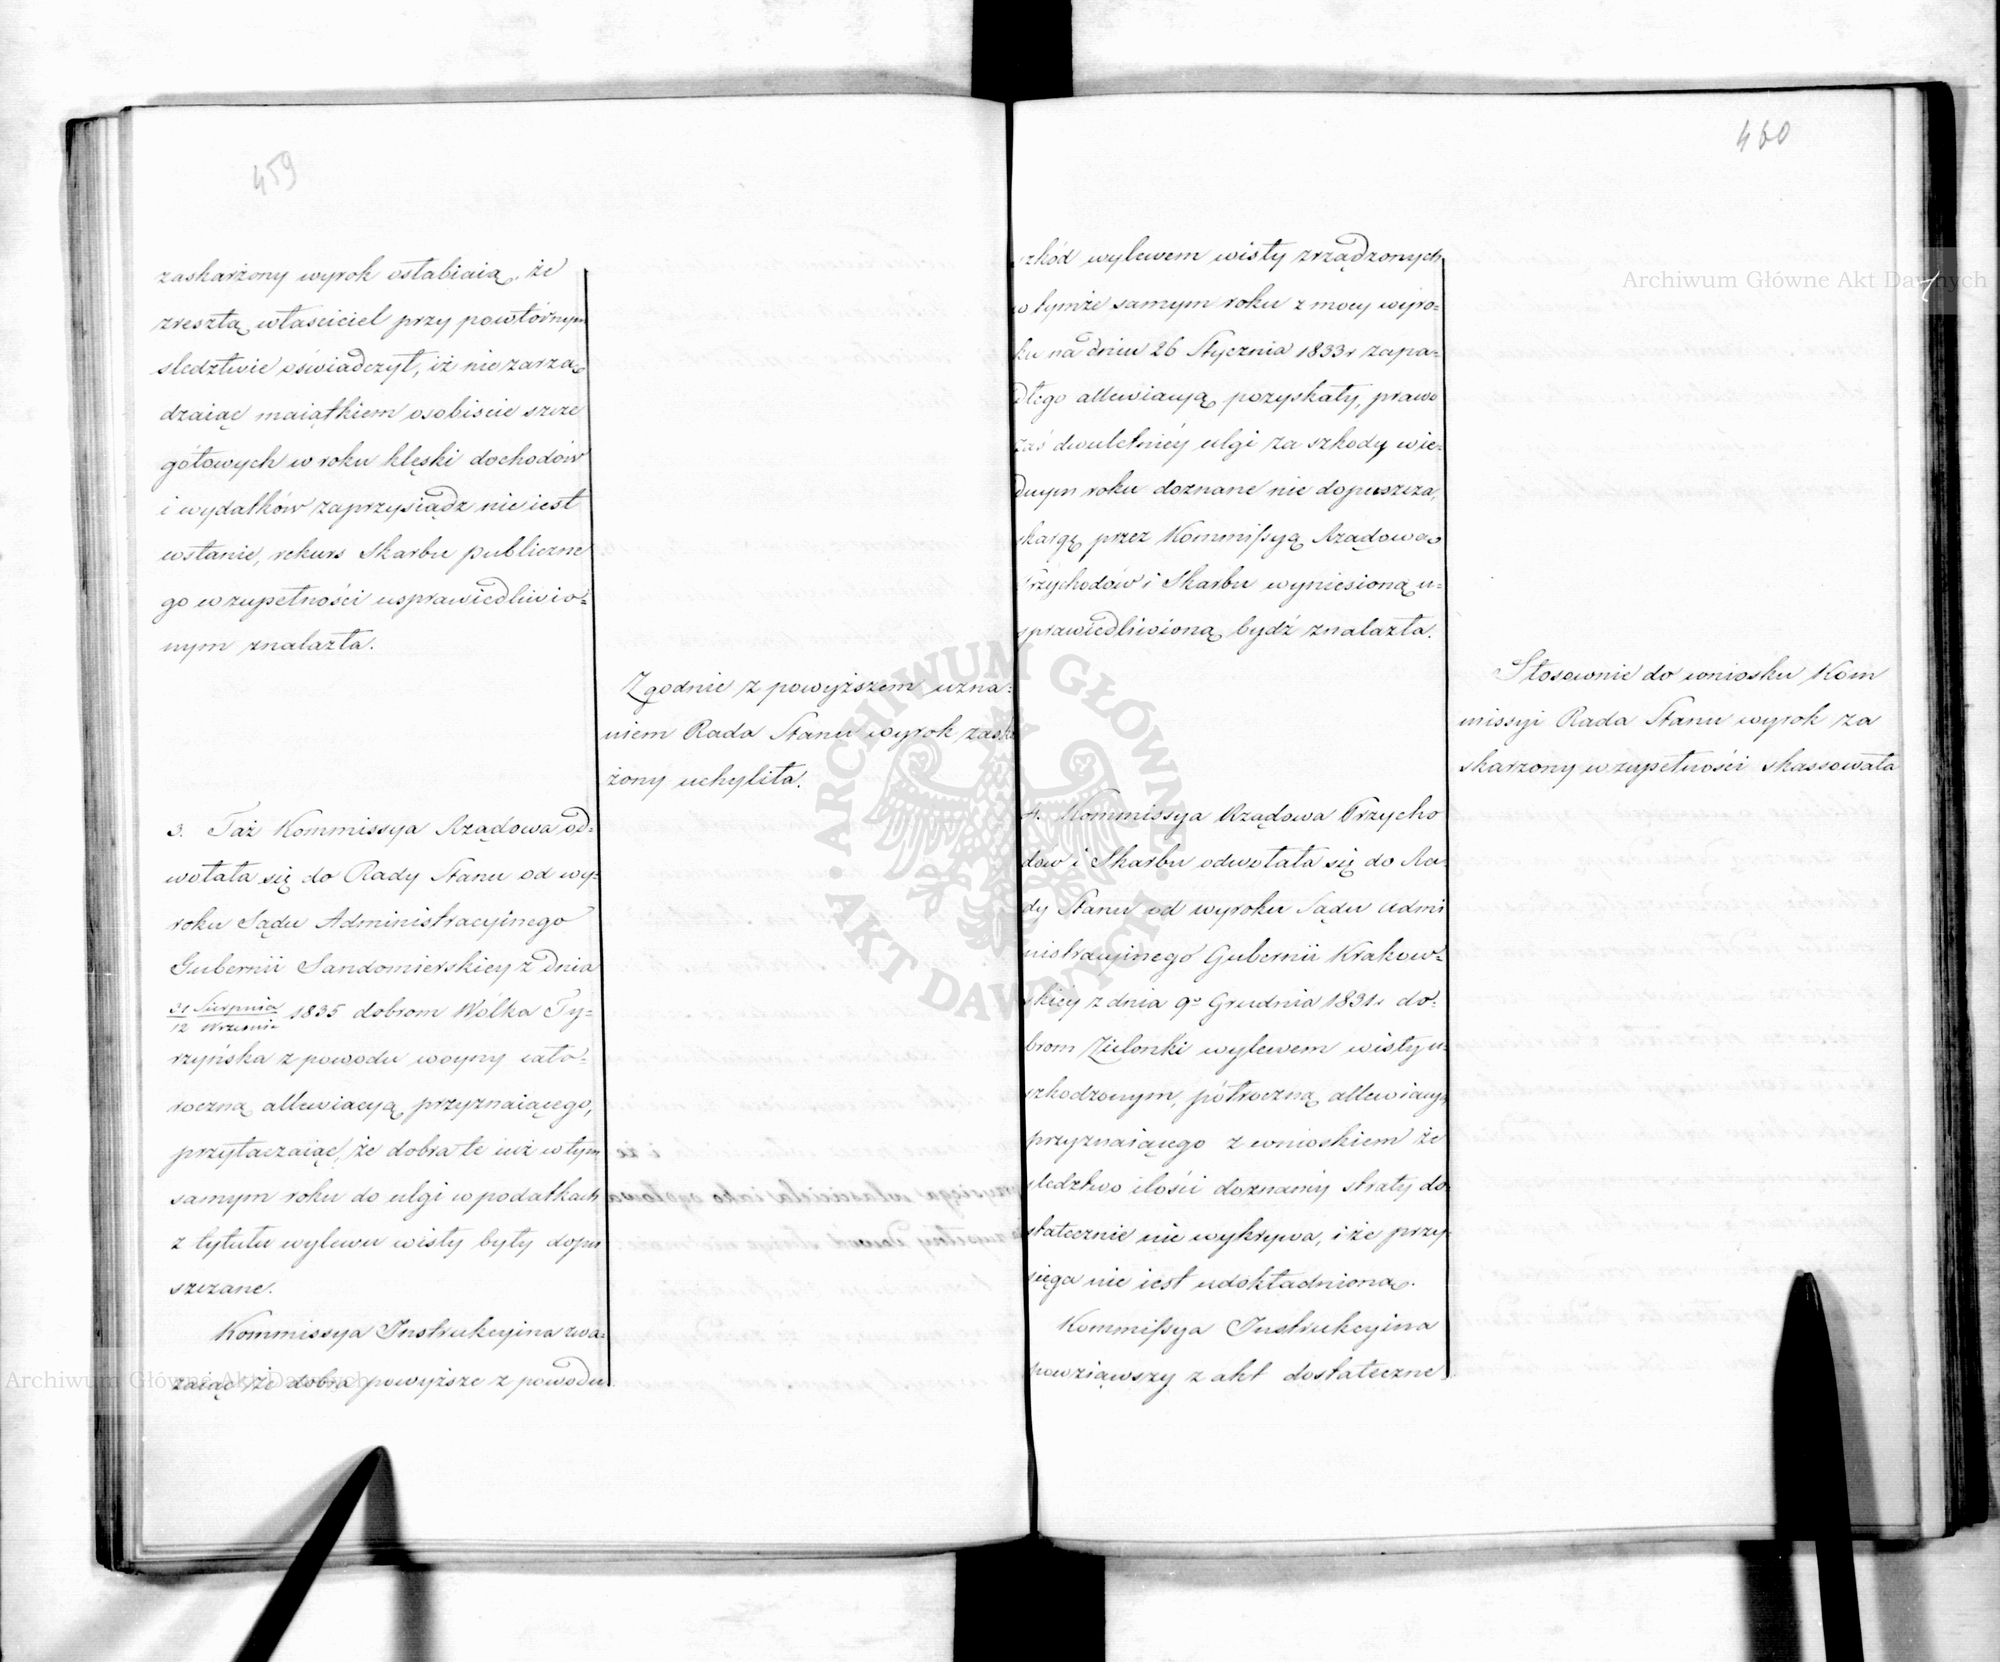 459
zaskarżony wyrok osłabiaią, że
zresztą właściciel przy powtórnym
sledztwie oświadczył, iż nie zarzą
dzaiąc maiątkiem osobiście szcze
gółowych w roku klęski dochodów
i wydatków zaprzysiądz nie iest
wstanie, rekurs Skarbu publiczne
go w zupełności usprawiedliwio-
nym znalazła.
Zgodnie z powyższem uzna-
niem Rada Stanu wyrok zaska
żony uchyliła.
3. Taż Kommissya Rządowa od-
wołała się do Rady Stanu od wy-
roku Sądu Administracyinego
Gubernii Sandomierskiey z dnia
31 Sierpnia / 12 Września 1835 dobrom Wólka Ty-
rzyńska z powodu woyny cało-
roczną allewiacyą przyznaiącego,
przytaczaiąc, że dobra te iuż w tym
samym roku do ulgi w podatkach
z tytułu wylewu wisły były dopu
szczane.
Kommissya Instrukcyina zwa-
żaiąc że dobra powyższe z powodu
460
szkód wylewem wisły zrządzonych
w tymże samym roku z mocy wyro-
ku na dniu 26 Stycznia 1833 r zapa-
dłego allewiacyą pozyskały, prawo
zaś dwuletniéy ulgi za szkody wie-
dnym roku doznane nie dopuszcza,
skargę przez Kommissyą Rządową
Przychodów i Skarbu wyniesioną u-
sprawiedliwioną bydź znalazła.
Stosownie do wniosku Kom
missyi Rada Stanu wyrok za
skarżony w zupełności skassowała
4. Kommissya Rządowa Przycho
dów i Skarbu odwołała się do Ra-
dy Stanu od wyroku Sądu Admi
nistracyinego Gubernii Krakow-
skiéy z dnia 9o Grudnia 1831 r do-
brom Zielonki wylewem wisły u-
szkodzonym, półroczną allewiacyą
przyznaiącego z wnioskiem że
sledztwo ilości doznanéy straty do-
statecznie nie wykrywa, i że przy-
sięga nie iest udokładnioną.
Kommissya Instrukcyina
powziąwszy z akt dostateczne
Archiwum Główne Akt Dawnych
ARCHIWUM GŁÓWNE AKT DAWNYCH
Archiwum Główne Akt Dawnych